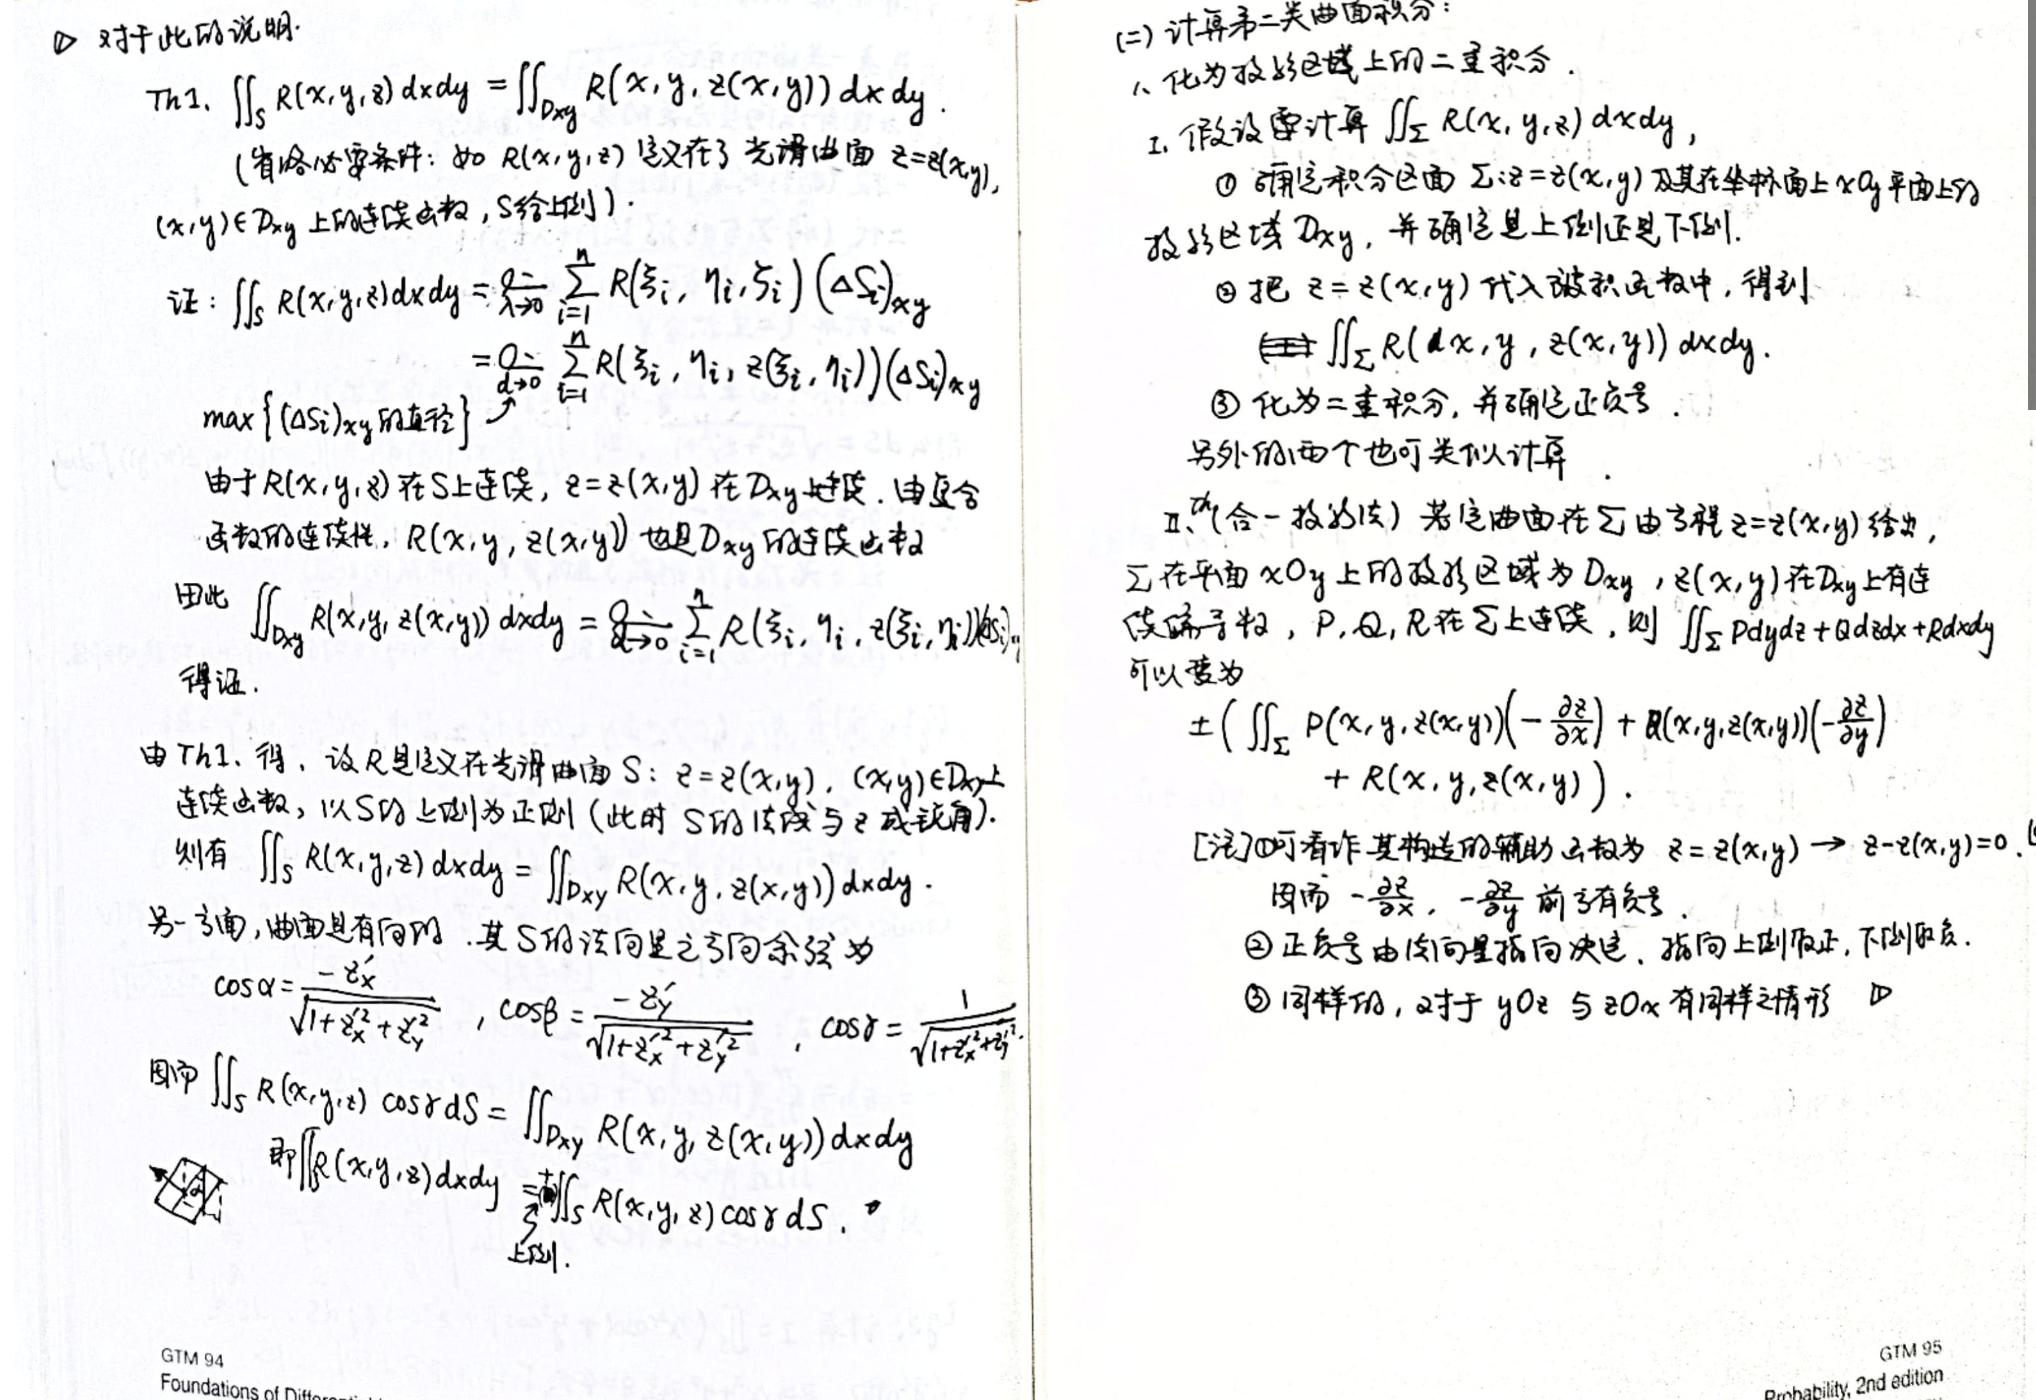 ▷ 对于此的说明.
Th1. ∬_S R(x,y,z) dxdy = ∬_{Dxy} R(x, y, z(x,y)) dx dy.
(省略必要条件: 如 R(x,y,z) 定义在了光滑曲面 z=z(x,y),
(x,y)∈Dxy 上的连续函数, S给上侧).
证: ∬_S R(x,y,z)dxdy = lim_{λ→0} Σ_{i=1}^{n} R(ξi, ηi, ζi) (ΔSi)xy
= lim_{d→0} Σ_{i=1}^{n} R(ξi, ηi, z(ξi, ηi)) (ΔSi)xy
max{(ΔSi)xy的直径}
由于R(x,y,z)在S上连续, z=z(x,y)在Dxy上连续. 由复合
函数的连续性, R(x,y,z(x,y))也是Dxy的连续函数
因此 ∬_{Dxy} R(x,y,z(x,y)) dxdy = lim_{d→0} Σ_{i=1}^{n} R(ξi, ηi, z(ξi,ηi))(ΔSi)xy
得证.
由Th1. 得, 设R是定义在光滑曲面 S: z=z(x,y), (x,y)∈Dxy上
连续函数, 以S的上侧为正侧 (此时 S的法线与z成锐角).
则有 ∬_S R(x,y,z) dxdy = ∬_{Dxy} R(x,y,z(x,y)) dxdy.
另一方面, 曲面是有向的. 其S的法向量之方向余弦为
cosα = -z'x / √(1+z'x²+z'y²), cosβ = -z'y / √(1+z'x²+z'y²), cosγ = 1 / √(1+z'x²+z'y²).
因而 ∬_S R(x,y,z) cosγ dS = ∬_{Dxy} R(x,y,z(x,y)) dxdy
即∬_S R(x,y,z) dxdy = + ∬_S R(x,y,z) cosγ dS.
上侧.
GTM 94
(二) 计算第二类曲面积分:
1. 化为投影区域上的二重积分.
I. 假设要计算 ∬_Σ R(x,y,z) dxdy,
① 确定积分区面 Σ: z=z(x,y) 及其在坐标面上 xOy平面上的
投影区域 Dxy, 并确定是上侧还是下侧.
② 把 z=z(x,y) 代入被积函数中, 得到
∬_Σ R(dx, y, z(x,y)) dxdy.
③ 化为二重积分, 并确定正负号.
另外的两个也可类似计算.
II. Th(合一投影法) 若定曲面在Σ由方程z=z(x,y)给出,
Σ在平面xOy上的投影区域为Dxy, z(x,y)在Dxy上有连
续偏导数, P,Q,R在Σ上连续, 则 ∬_Σ Pdydz+Qdzdx+Rdxdy
可以变为
± ( ∬_Σ P(x,y,z(x,y))(-∂z/∂x) + Q(x,y,z(x,y))(-∂z/∂y)
+ R(x,y,z(x,y)) ).
[注]①可看作其构造的辅助函数为 z=z(x,y) → z-z(x,y)=0.
因而 -∂z/∂x, -∂z/∂y 前方有负号.
②正负号由法向量指向决定, 指向上侧取正, 下侧取负.
③ 同样的, 对于 yOz 与 zOx 有同样之情形 ▷
GTM 95
Probability, 2nd edition